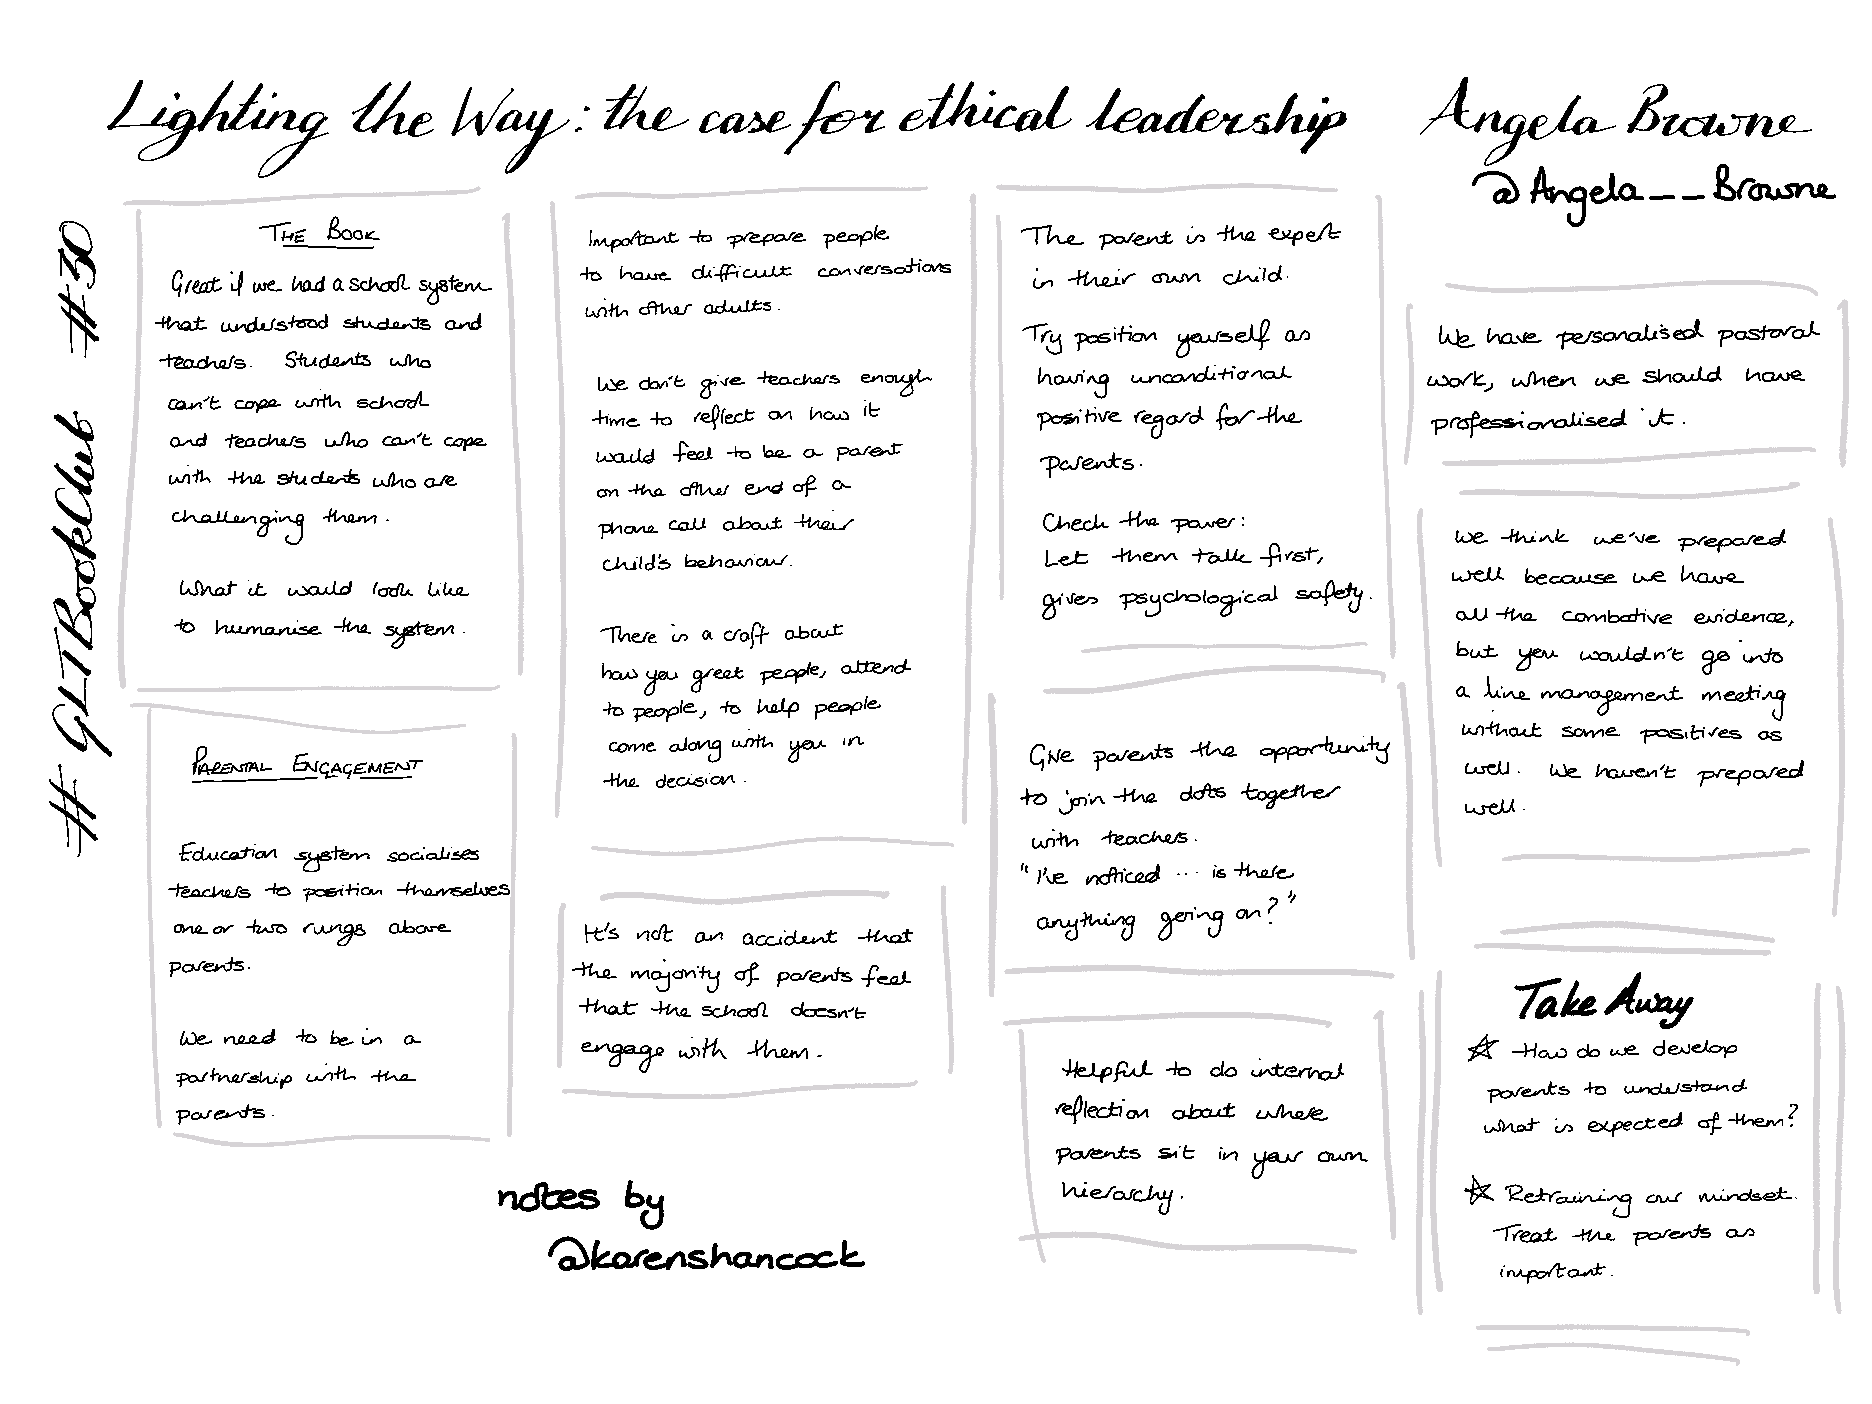 Lighting the Way: the case for ethical leadership
Angela Browne
@Angela__Browne
#GLTBookClub #30
THE BOOK
Great if we had a school system
that understood students and
teachers. Students who
can't cope with school
and teachers who can't cope
with the students who are
challenging them.
What it would look like
to humanise the system.
PARENTAL ENGAGEMENT
Education system socialises
teachers to position themselves
one or two rungs above
parents.
We need to be in a
partnership with the
parents.
Important to prepare people
to have difficult conversations
with other adults.
We don't give teachers enough
time to reflect on how it
would feel to be a parent
on the other end of a
phone call about their
child's behaviour.
There is a craft about
how you greet people, attend
to people, to help people
come along with you in
the decision.
It's not an accident that
the majority of parents feel
that the school doesn't
engage with them.
The parent is the expert
in their own child.
Try position yourself as
having unconditional
positive regard for the
parents.
Check the power:
Let them talk first,
gives psychological safety.
Give parents the opportunity
to join the dots together
with teachers.
"I've noticed ... is there
anything going on?"
Helpful to do internal
reflection about where
parents sit in your own
hierarchy.
We have personalised pastoral
work, when we should have
professionalised it.
We think we've prepared
well because we have
all the combative evidence,
but you wouldn't go into
a line management meeting
without some positives as
well. We haven't prepared
well.
Take Away
☆ How do we develop
parents to understand
what is expected of them?
☆ Retraining our mindset.
Treat the parents as
important.
notes by
@karenshancock